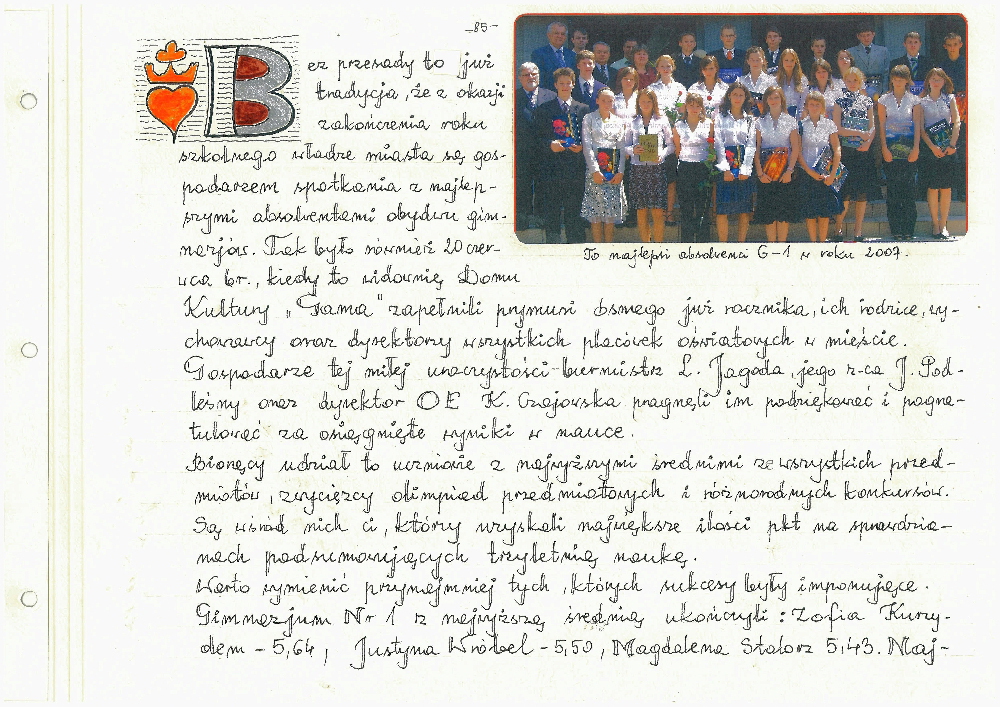 -85-
Bez przesady to już
tradycja, że z okazji
zakończenia roku
szkolnego władze miasta są gos-
podarzem spotkania z najlep-
szymi absolwentami obydwu gim-
nazjów. Tak było również 20 czer-
wca br., kiedy to widownię Domu
To najlepsi absolwenci G-1 w roku 2007.
Kultury „Gama" zapełnili prymusi ósmego już rocznika, ich rodzice, wy-
chowawcy oraz dyrektorzy wszystkich placówek oświatowych w mieście.
Gospodarze tej miłej uroczystości - burmistrz L. Jagoda, jego z-ca J. Pod-
leśny oraz dyrektor OE K. Czajowska pragnęli im podziękować i pogra-
tulować za osiągnięte wyniki w nauce.
Biorący udział to uczniowie z najwyższymi średnimi ze wszystkich przed-
miotów, zwycięzcy olimpiad przedmiotowych i różnorodnych konkursów.
Są wśród nich ci, którzy uzyskali największe ilości pkt na sprawdzia-
nach podsumowujących trzyletnią naukę.
Warto wymienić przynajmniej tych, których sukcesy były imponujące.
Gimnazjum Nr 1 z najwyższą średnią ukończyli: Zofia Kurzy-
dem - 5,64, Justyna Wróbel - 5,50, Magdalena Stalorz 5,43. Naj-